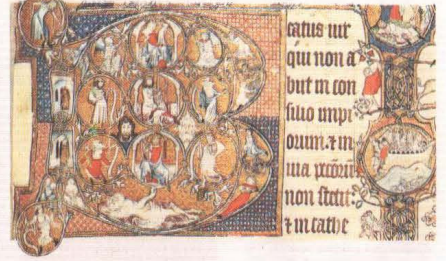 eatus uir
qui non a
biit in con
silio impi
orum. ⁊ in
uia
non stetit:
⁊ in cathe